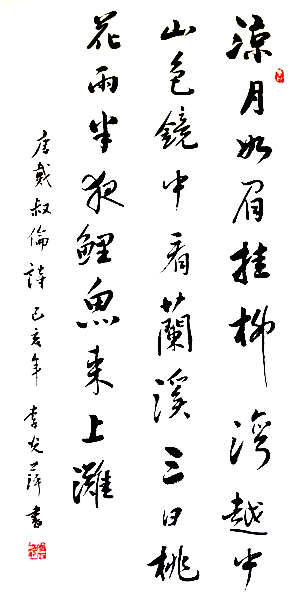 涼月如眉挂柳灣越中
山色鏡中看蘭溪三日桃
花雨半夜鯉魚來上灘
唐戴叔倫詩己亥年李書